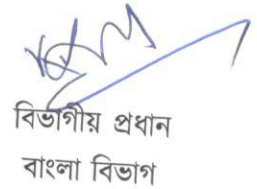 বিভাগীয় প্রধান
বাংলা বিভাগ